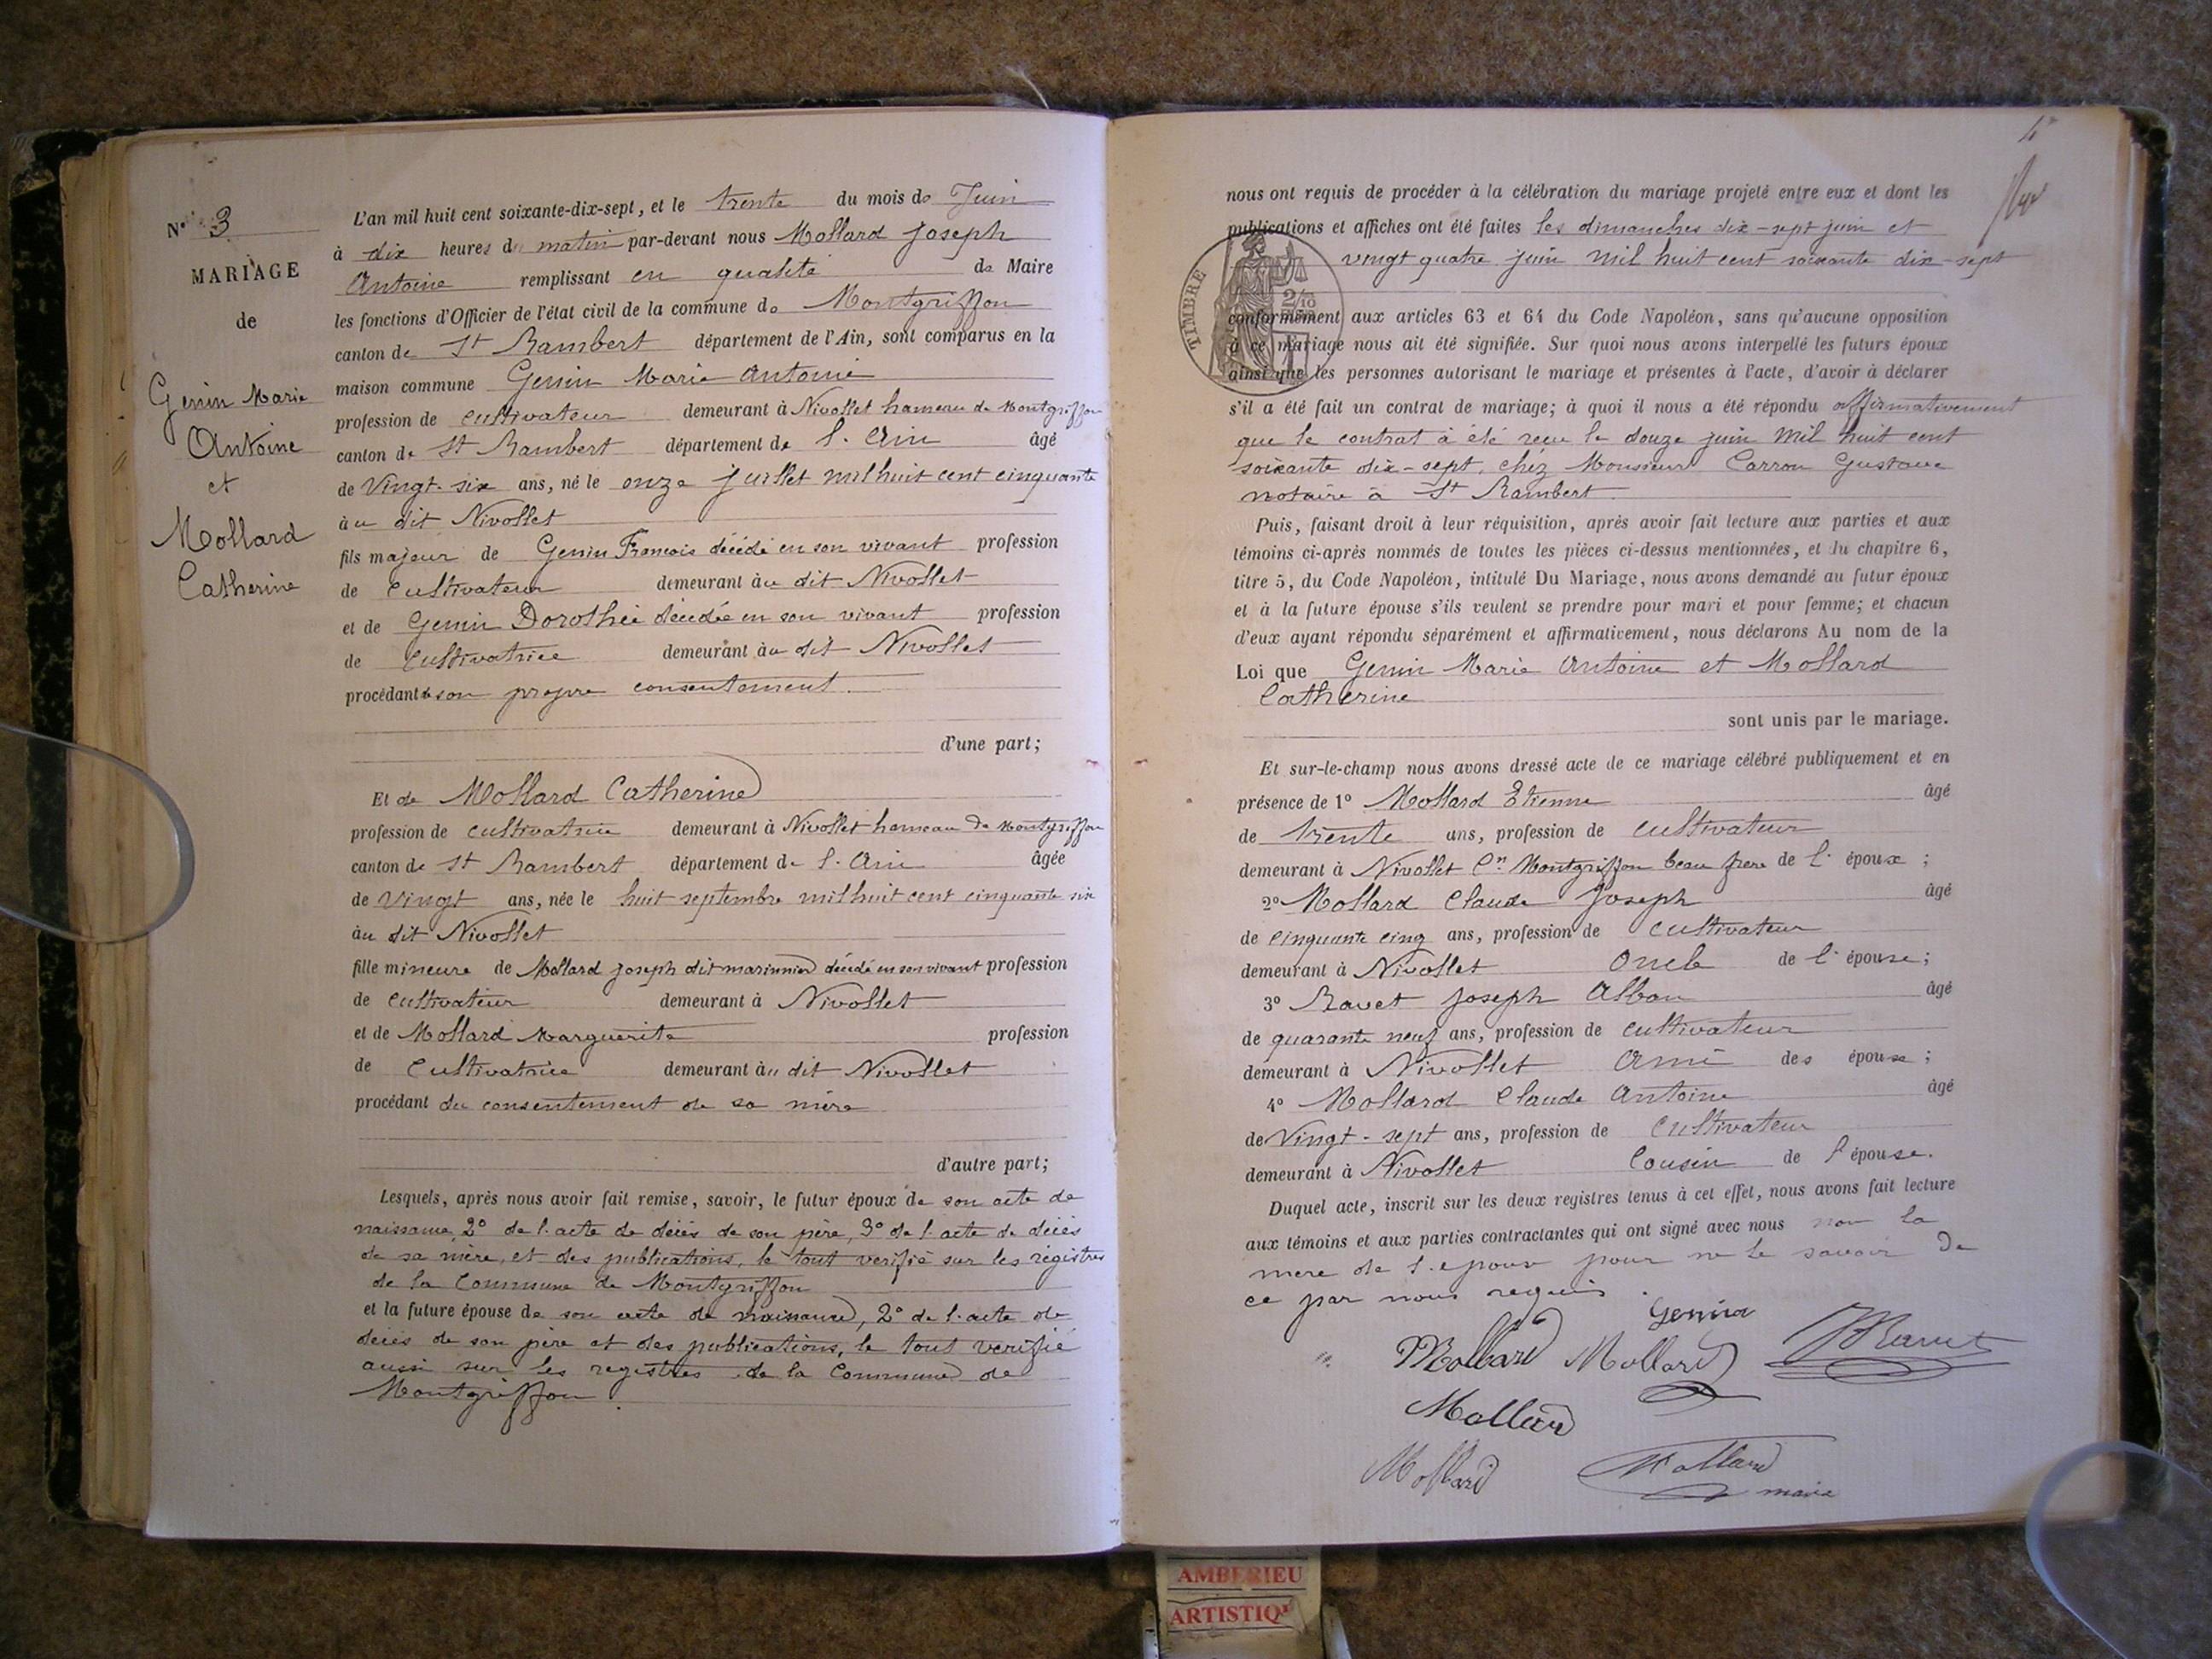 N° 3
MARIAGE
de
Genin Marie
Antoine
et
Mollard
Catherine
L'an mil huit cent soixante-dix-sept, et le trente du mois de Juin
à dix heures du matin par-devant nous Mollard Joseph
Antoine remplissant en qualité de Maire
les fonctions d'Officier de l'état civil de la commune de Montgriffon
canton de St Rambert département de l'Ain, sont comparus en la
maison commune Genin Marie Antoine
profession de cultivateur demeurant à Nivollet hameau de Montgriffon
canton de St Rambert département de l'Ain âgé
de Vingt-six ans, né le onze juillet mil huit cent cinquante
àu dit Nivollet
fils majeur de Genin François décédé en son vivant profession
de Cultivateur demeurant àu dit Nivollet
et de Genin Dorothée décédée en son vivant profession
de Cultivatrice demeurant àu dit Nivollet
procédant de son propre consentement.
d'une part;
Et de Mollard Catherine
profession de cultivatrice demeurant à Nivollet hameau de Montgriffon
canton de St Rambert département de l'Ain âgée
de Vingt ans, née le huit septembre mil huit cent cinquante six
àu dit Nivollet
fille mineure de Mollard Joseph dit marinnier décédé en son vivant profession
de Cultivateur demeurant à Nivollet
et de Mollard Marguerite profession
de Cultivatrice demeurant àu dit Nivollet
procédant du consentement de sa mère
d'autre part;
Lesquels, après nous avoir fait remise, savoir, le futur époux de son acte de
naissance, 2° de l'acte de décès de son père, 3° de l'acte de décès
de sa mère, et des publications, le tout verifié sur les régistres
de la Commune de Montgriffon
et la future épouse de son acte de naissance, 2° de l'acte de
décès de son père et des publications, le tout verifié
aussi sur les registres de la Commune de
Montgriffon.
4
nous ont requis de procéder à la célébration du mariage projeté entre eux et dont les
publications et affiches ont été faites les dimanches dix-sept juin et
vingt quatre juin mil huit cent soixante dix-sept
TIMBRE
2/10
conformément aux articles 63 et 64 du Code Napoléon, sans qu'aucune opposition
à ce mariage nous ait été signifiée. Sur quoi nous avons interpellé les futurs époux
ainsi que les personnes autorisant le mariage et présentes à l'acte, d'avoir à déclarer
s'il a été fait un contrat de mariage; à quoi il nous a été répondu affirmativement
que le contrat à été reçu le douze juin mil huit cent
soixante dix-sept, chéz Monsieur Carron Gustave
notaire à St Rambert.
Puis, faisant droit à leur réquisition, après avoir fait lecture aux parties et aux
témoins ci-après nommés de toutes les pièces ci-dessus mentionnées, et du chapitre 6,
titre 5, du Code Napoléon, intitulé Du Mariage, nous avons demandé au futur époux
et à la future épouse s'ils veulent se prendre pour mari et pour femme; et chacun
d'eux ayant répondu séparément et affirmativement, nous déclarons Au nom de la
Loi que Genin Marie Antoine et Mollard
Catherine
sont unis par le mariage.
Et sur-le-champ nous avons dressé acte de ce mariage célébré publiquement et en
présence de 1° Mollard Etienne âgé
de trente ans, profession de Cultivateur
demeurant à Nivollet Cne Montgriffon beau frere de l'époux;
2° Mollard Claude Joseph âgé
de cinquante cinq ans, profession de Cultivateur
demeurant à Nivollet Oncle de l'épouse;
3° Ravet Joseph Alban âgé
de quarante neuf ans, profession de Cultivateur
demeurant à Nivollet Ami des épouse;
4° Mollard Claude Antoine âgé
de Vingt-sept ans, profession de Cultivateur
demeurant à Nivollet Cousin de l'épouse.
Duquel acte, inscrit sur les deux registres tenus à cet effet, nous avons fait lecture
aux témoins et aux parties contractantes qui ont signé avec nous non la
mere de l'epouse pour ne le savoir de
ce par nous requis.
Genin
Mollard Mollard JRavet
Mollard
Mollard Mollard
maire
AMBERIEU
ARTISTIQ